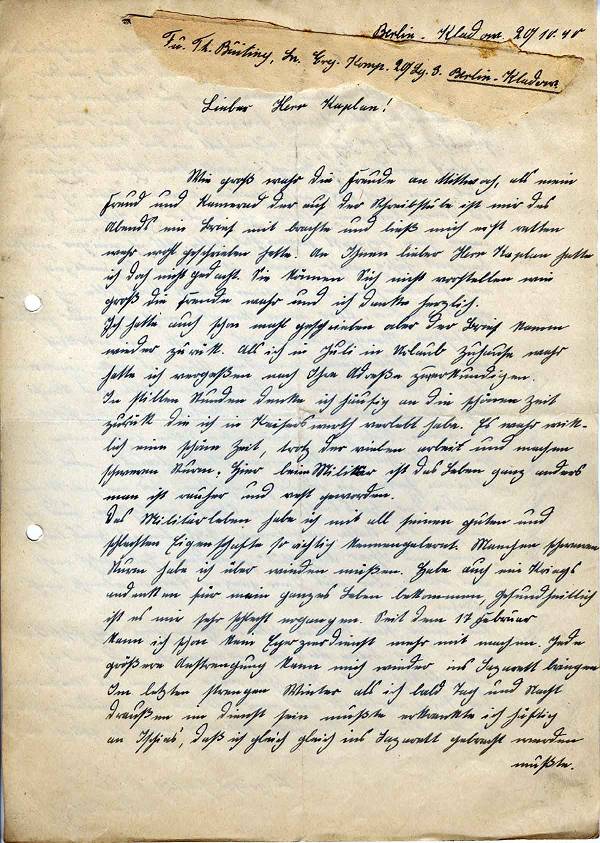 Berlin - Kladow. 20/10.40
Fü. Th. Büüting, Ln. Erg. Komp. 20/Lg. 3. Berlin-Kladow
Lieber Herr Kaplan!
Wie groß wahr die Freude an Mittwoch, als mein
Freund und Kamerad der auf der Schreibstube ist mir des
Abends ein Brief mit brachte und ließ mich erst ratten
wehr wohl geschrieben hatte. An Ihnen lieber Herr Kaplan hatte
ich doch nicht gedacht. Sie können Sich nicht vorstellen wie
groß die Freude wahr und ich danke herzlich.
Ich hatte auch schon mahl geschrieben aber der Brief kamm
wieder zurük. Als ich in Juli in Urlaub zuhause wahr
hatte ich vergeßen nach Ihre Adreße zu erkundigen.
In stillen Stunden denke ich häufig an die schönen Zeit
zurük die ich in Keiserswerth verlebt habe. Es wahr wirk-
lich eine schöne Zeit, trotz der vielen arbeit und machen
schweren Sturm. Hier beim Militär ist das Leben ganz anders
man ist rauher und geworden.
Das Militärleben habe ich mit all seinen guten und
schlechten Eigenschafte so richtig kennengelernt. Manchen schweren
Sturm habe ich über winden müßen. Habe auch ein Kriegs
andenken für mein ganzes Leben bekommen, gesundheitlich
ist es mir sehr schlecht ergangen. Seit dem 17 Februar
kann ich schon kein Exerzierdienst mehr mit machen. Jede
größere Anstrengung kann mich wieder ins Lazarett bringen
Im letzten strengen Winter als ich bald Tag und Nacht
draußen im dienst sein mußte erkrankte ich häftig
an Ischias, daß ich gleich gleich ins Lazarett gebracht werden
mußte.